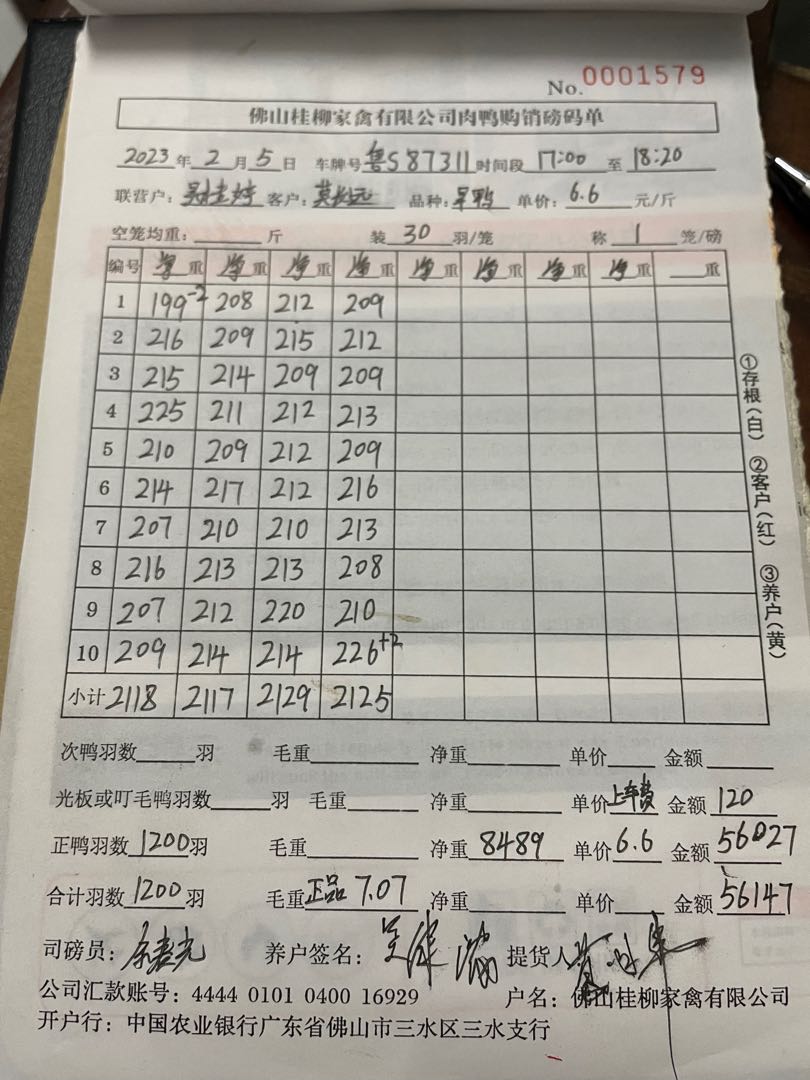 No.0001579
佛山桂柳家禽有限公司肉鸭购销磅码单
2023年2月5日 车牌号 鲁S87311 时间段 17:00 至 18:20
联营户: 客户: 莫长远 品种: 旱鸭 单价: 6.6 元/斤
空笼均重: 斤 装 30 羽/笼 称 1 笼/磅
编号 净重 净重 净重 净重 净重 净重 净重 净重 重
1 199-2 208 212 209
2 216 209 215 212
3 215 214 209 209
4 225 211 212 213
5 210 209 212 209
6 214 217 212 216
7 207 210 210 213
8 216 213 213 208
9 207 212 220 210
10 209 214 214 226+2
小计 2118 2117 2129 2125
①存根(白) ②客户(红) ③养户(黄)
次鸭羽数 羽 毛重 净重 单价 金额
光板或叮毛鸭羽数 羽 毛重 净重 单价 上车费 金额 120
正鸭羽数 1200 羽 毛重 净重 8489 单价 6.6 金额 56027
合计羽数 1200 羽 毛重 正品 7.07 净重 单价 金额 56147
司磅员: 养户签名: 提货人
公司汇款账号: 4444 0101 0400 16929 户名: 佛山桂柳家禽有限公司
开户行: 中国农业银行广东省佛山市三水区三水支行